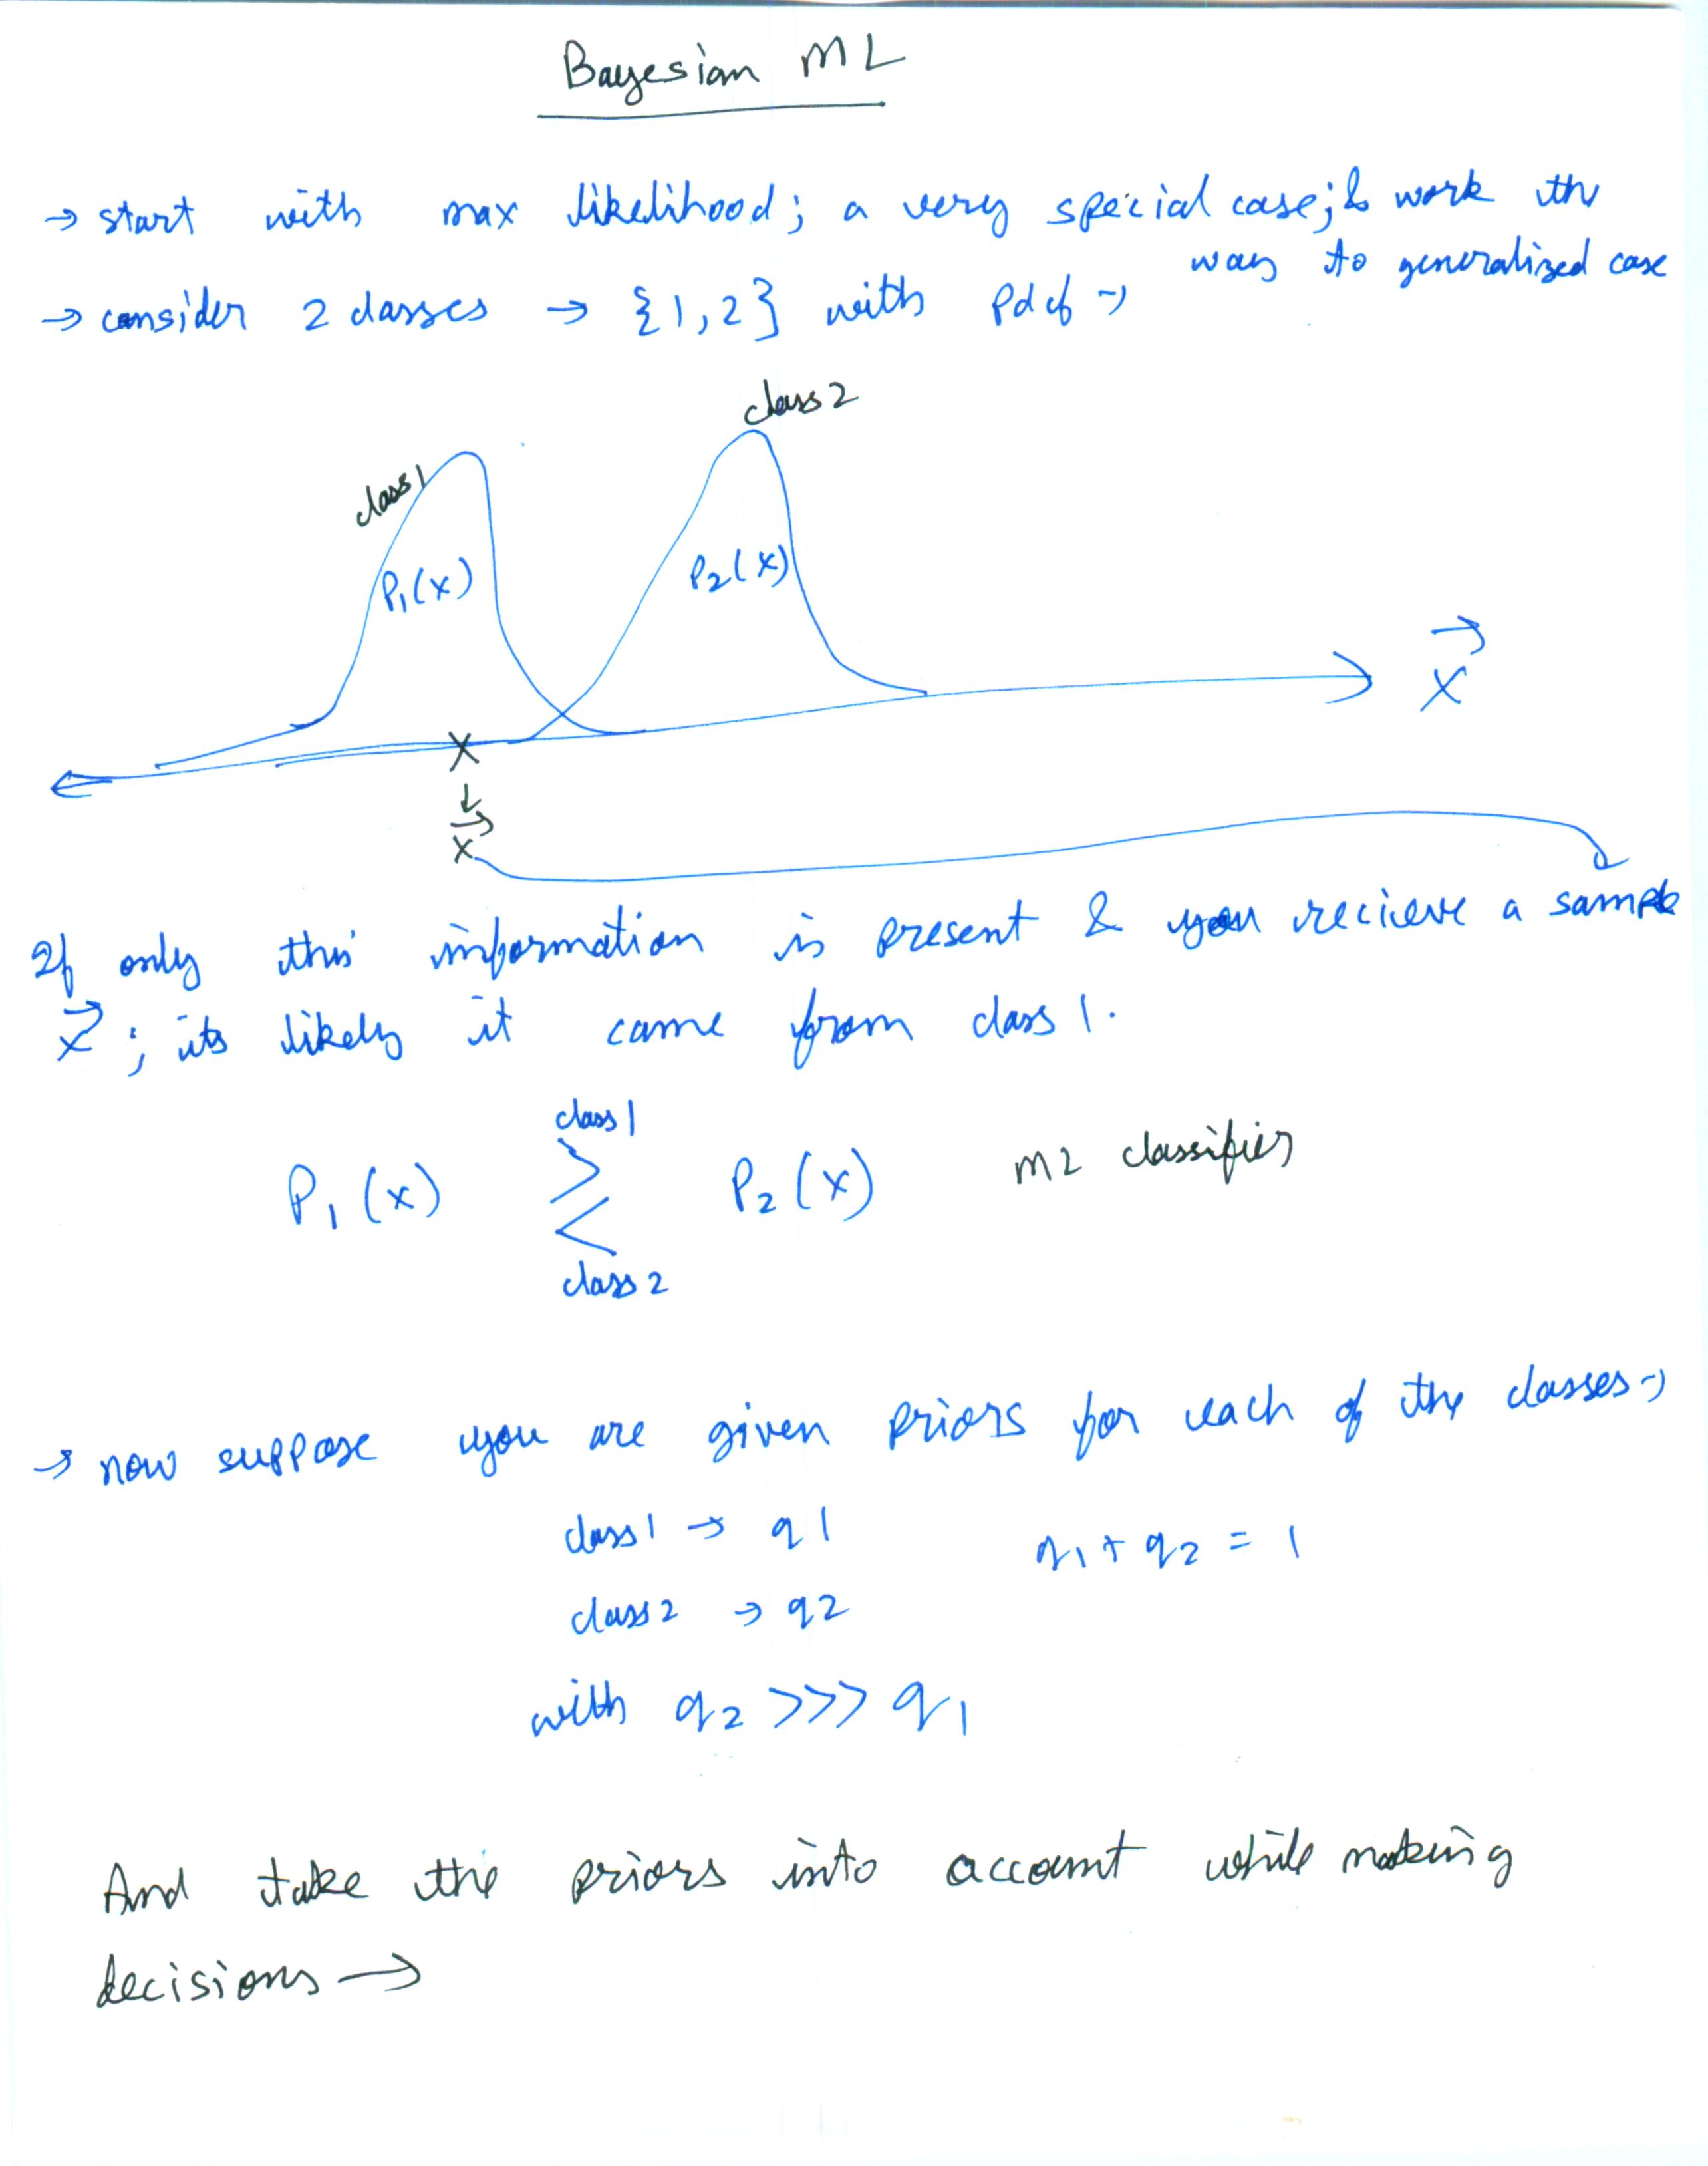 Bayesian ML
→ start with max likelihood; a very special case; & work the
way to generalized case
→ consider 2 classes → {1,2} with Pdf →
class 2
class 1
P₁(x)
P₂(x)
x⃗
x
↓
x⃗
If only this information is present & you recieve a sample
x⃗ ; its likely it came from class 1.
class 1
P₁(x) ≷ P₂(x) ML classifier
class 2
→ now suppose you are given priors for each of the classes →
class 1 → q1 q₁ + q₂ = 1
class 2 → q2
with q₂ >>> q₁
And take the priors into account while making
decisions →